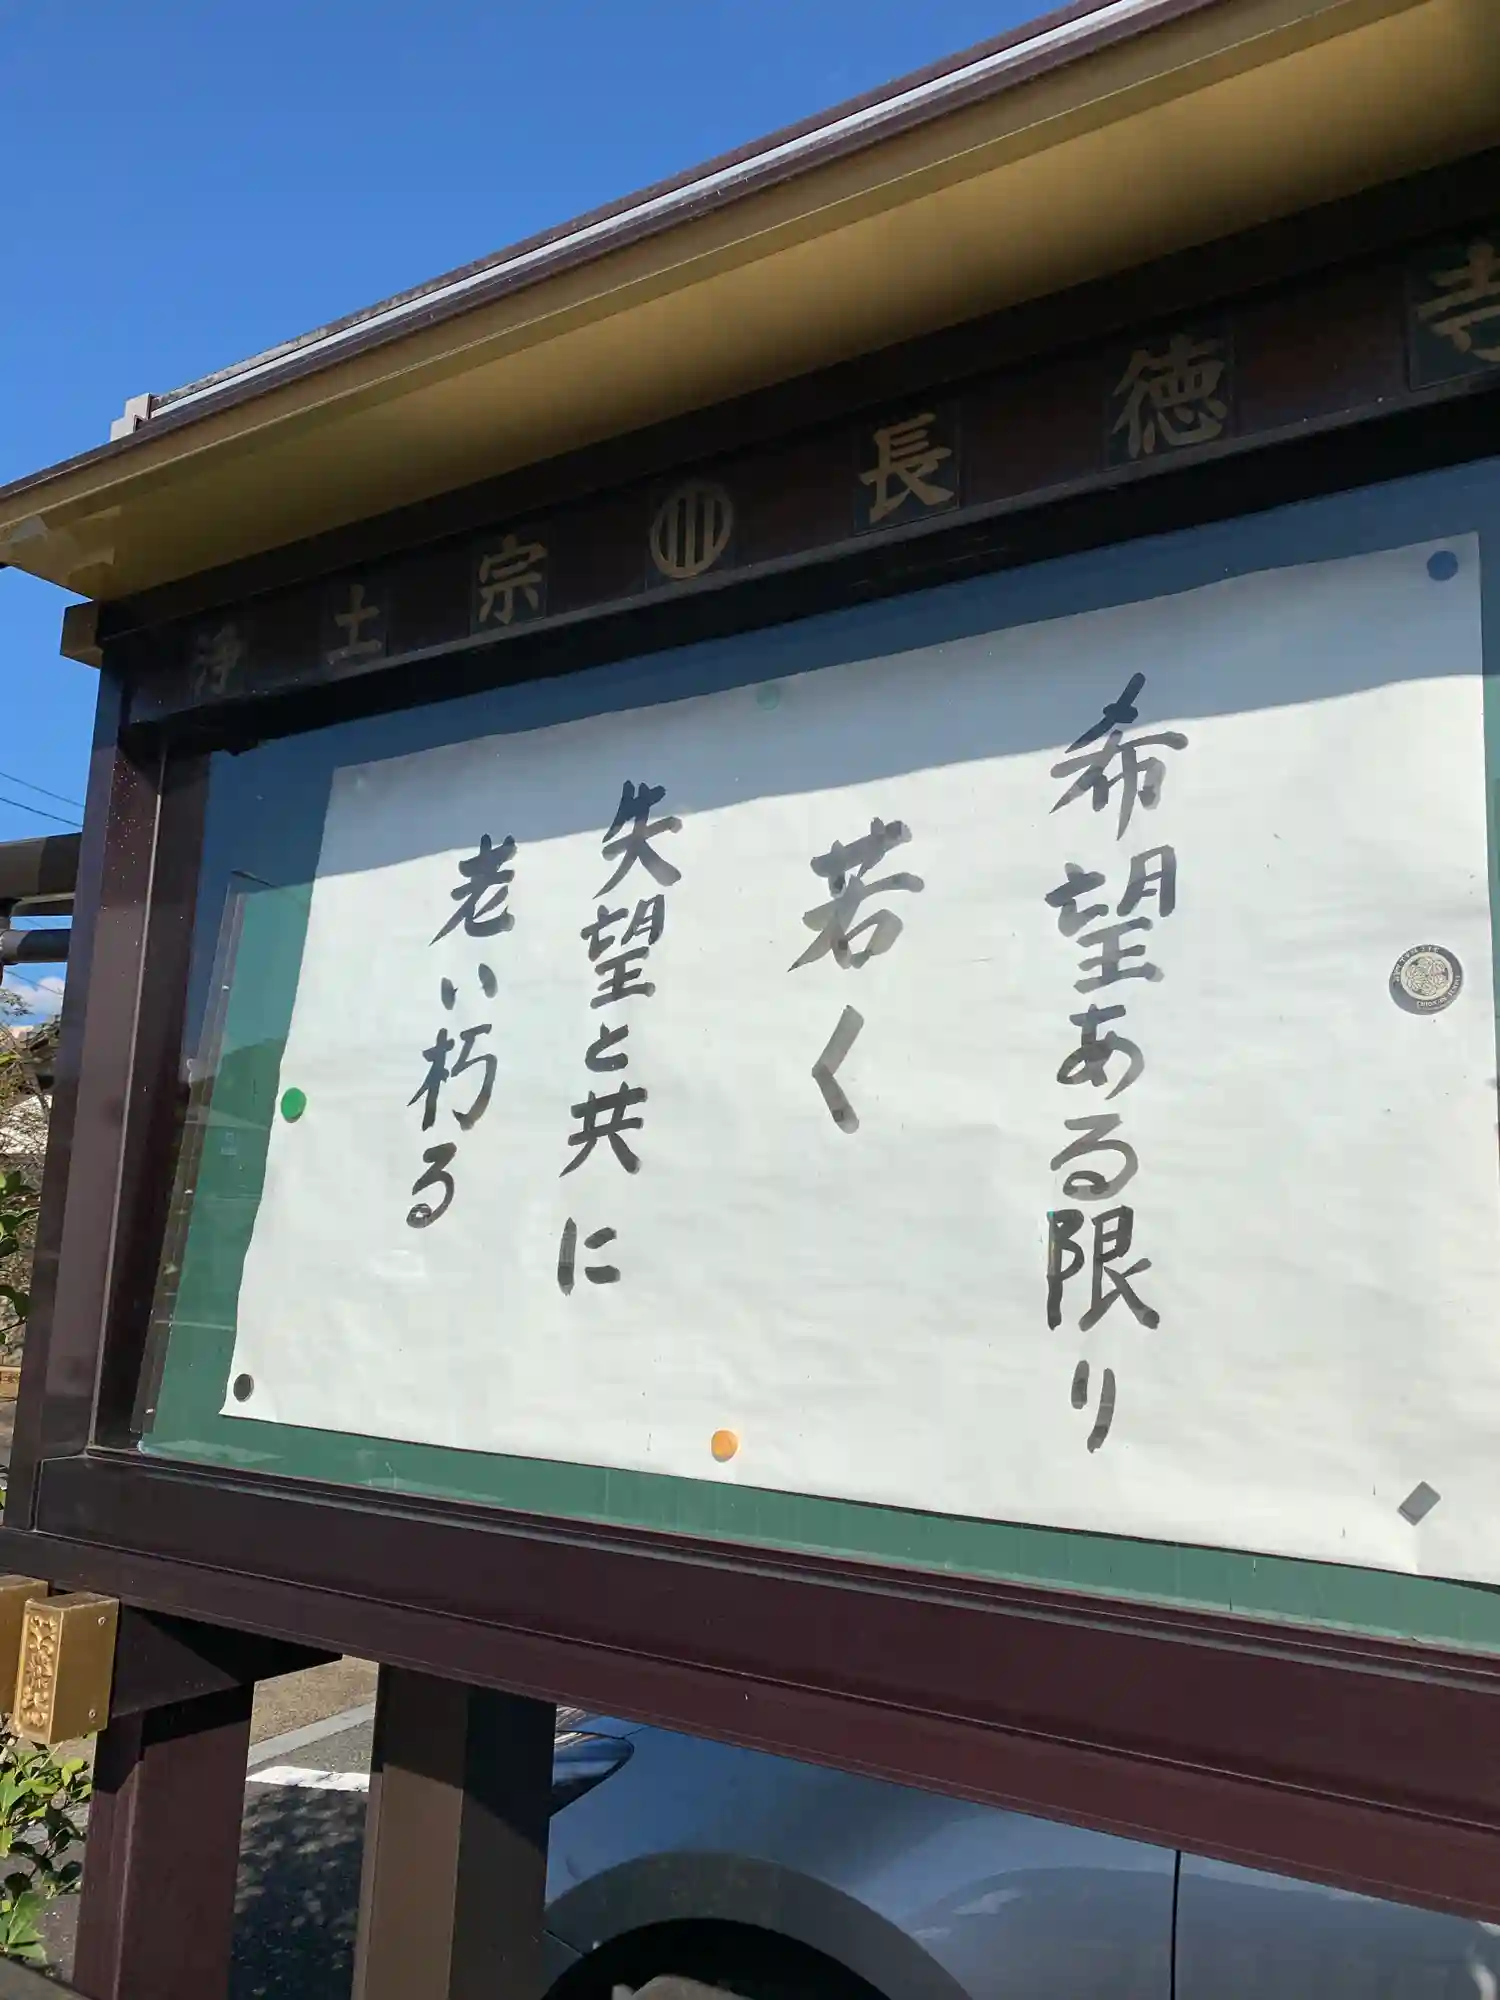 浄土宗 長徳寺
希望ある限り
若く
失望と共に
老い朽る